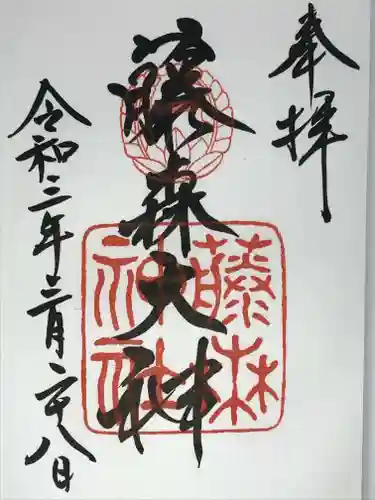 奉拝
藤森大神
藤森
神社
令和三年三月二十八日